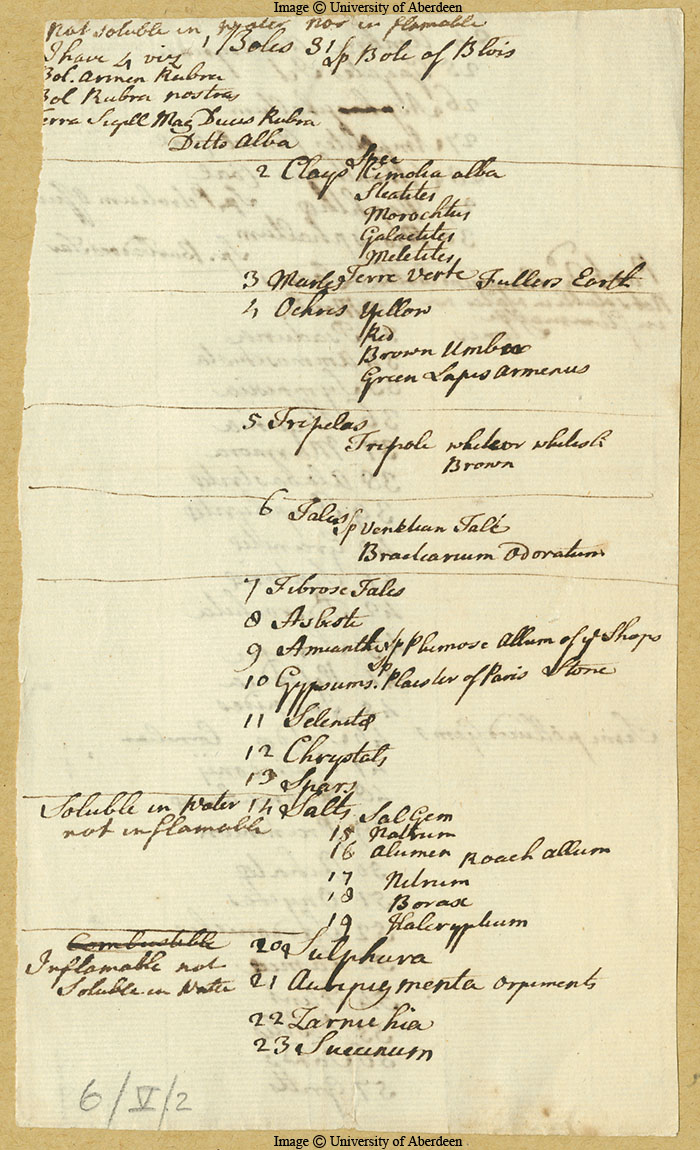 Image © University of Aberdeen
Not soluble in water nor in flamable
I have 4 viz 1 Boles 31 Sp Bole of Blois
Bol. Armen Rubra
Bol Rubra nostras
Terra Sigill Mag Ducis Rubra
Ditto Alba
2 Clays Spec Kimolia alba
Steatites
Morochtus
Galactites
Meletites
3 Marles Terre Verte Fullers Earth
4 Ochres Yellow
Red
Brown Umber
Green Lapis Armenus
5 Tripelas
Tripole white or whitish
Brown
6 Talcs Sp Venetian Talc
Bractearium Odoratum
7 Fibrose Talcs
8 Asbeste
9 Amianthi Sp Plumose Allum of ye Shops
10 Gypsums. Sp Plaister of Paris Stone
11 Selenitæ
12 Chrystals
13 Spars
Soluble in Water 14 Salts Sal Gem
not inflamable 15 Natrum
16 Alumen Roach allum
17 Nitrum
18 Borax
19 Halcryptium
Combustible 20 Sulphura
Inflamable not
Soluble in Water 21 Auripigmenta Orpiments
22 Zarnichia
23 Succinum
6/V/2
Image © University of Aberdeen